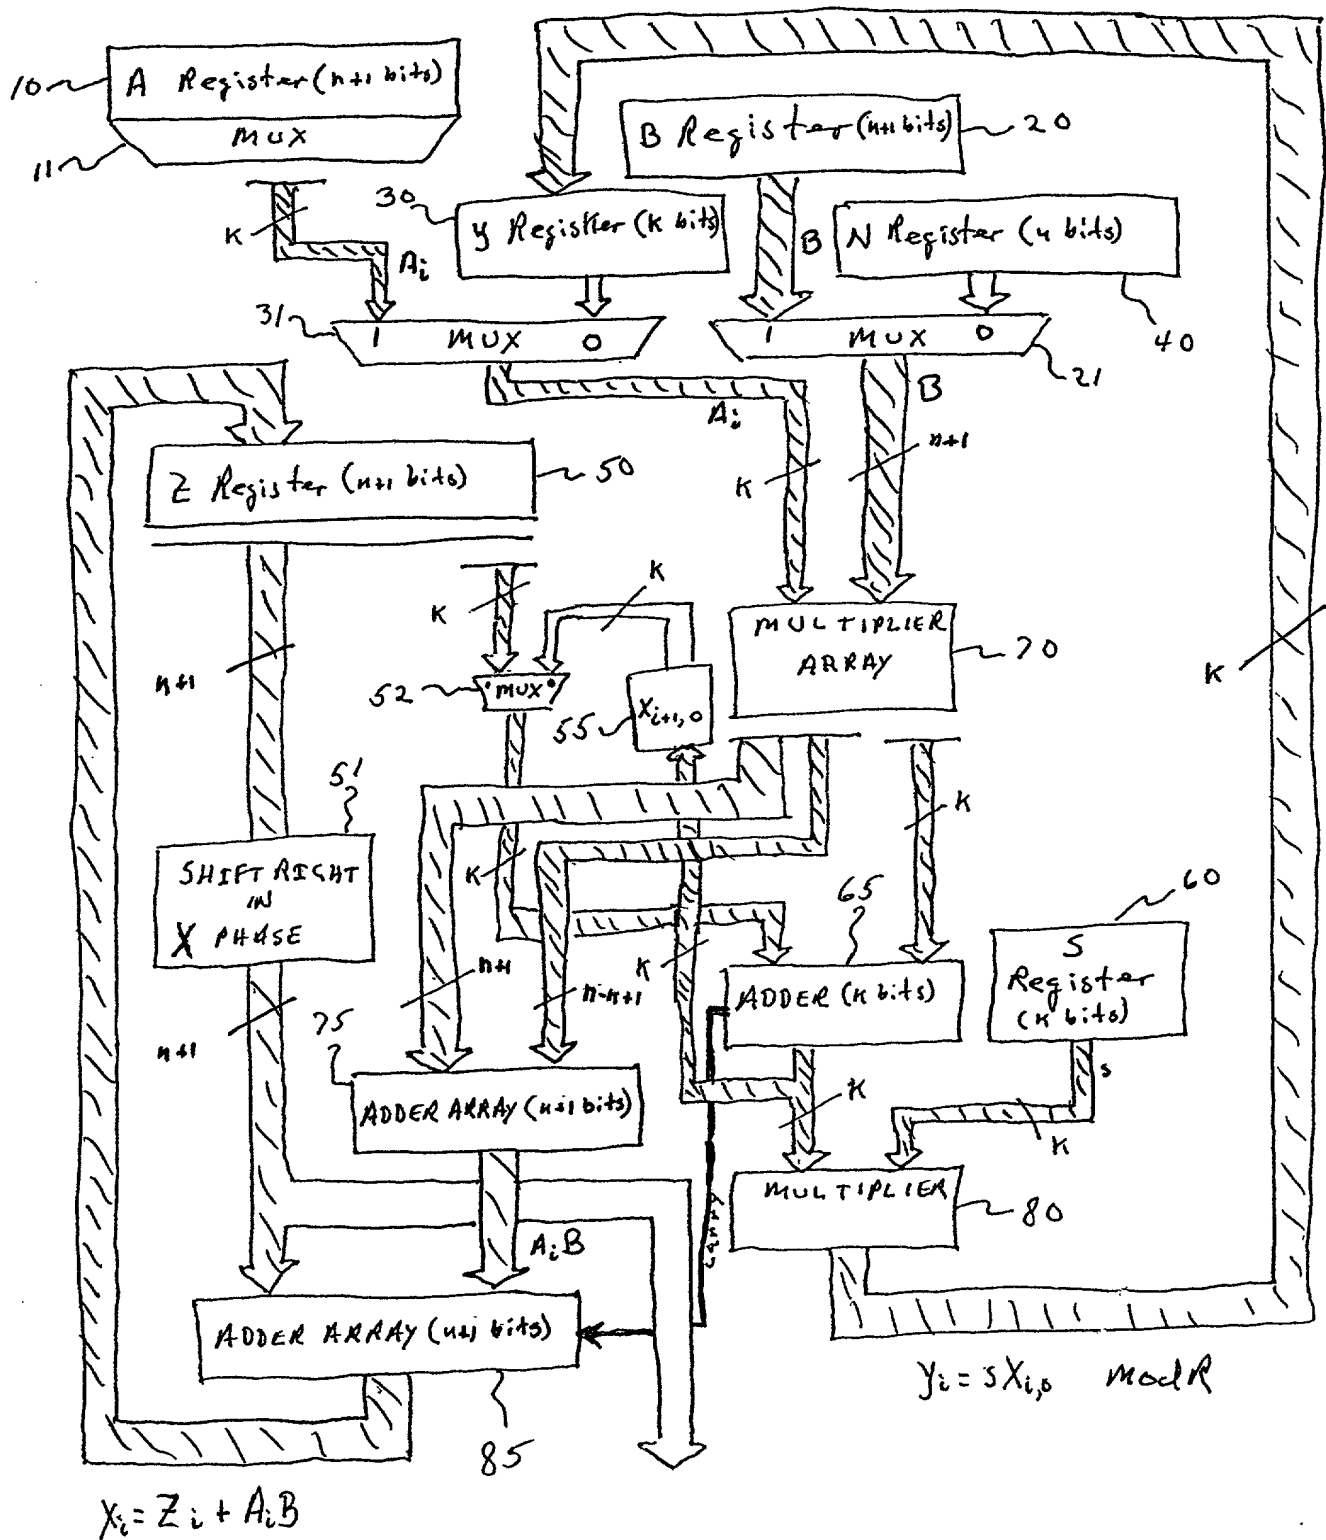 10
A Register (n+1 bits)
MUX
11
B Register (n+1 bits)
20
30
y Register (k bits)
B
N Register (n bits)
40
K
Ai
31
1 MUX 0
1 MUX 0
21
Ai
B
K
n+1
Z Register (n+1 bits)
50
K
K
MULTIPLIER
ARRAY
70
K
n+1
52
MUX
55
Xi+1,0
51
SHIFT RIGHT
IN
X PHASE
K
K
60
65
S
Register
(k bits)
n+1
n-k+1
K
ADDER (k bits)
n+1
75
ADDER ARRAY (n+1 bits)
K
s
K
carry
MULTIPLIER
80
AiB
ADDER ARRAY (n+1 bits)
85
yi = sXi,0 mod R
Xi = Zi + AiB